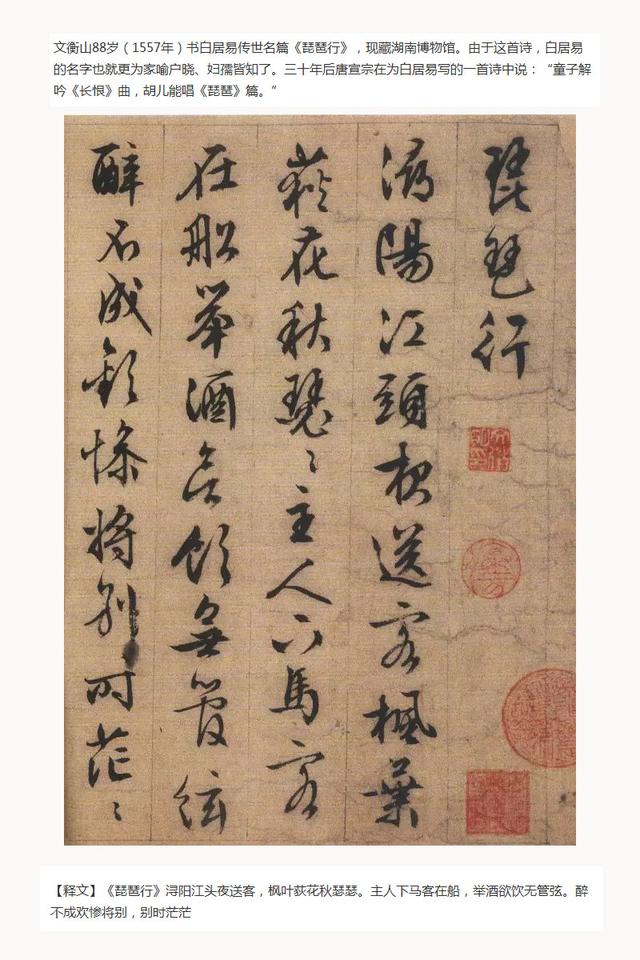 文衡山88岁（1557年）书白居易传世名篇《琵琶行》，现藏湖南博物馆。由于这首诗，白居易
的名字也就更为家喻户晓、妇孺皆知了。三十年后唐宣宗在为白居易写的一首诗中说：“童子解
吟《长恨》曲，胡儿能唱《琵琶》篇。”
琵琶行
潯陽江頭夜送客楓葉
荻花秋瑟〻主人下馬客
在船举酒欲飲無管絃
醉不成歡惨将别时茫〻
【释文】《琵琶行》浔阳江头夜送客，枫叶荻花秋瑟瑟。主人下马客在船，举酒欲饮无管弦。醉
不成欢惨将别，别时茫茫